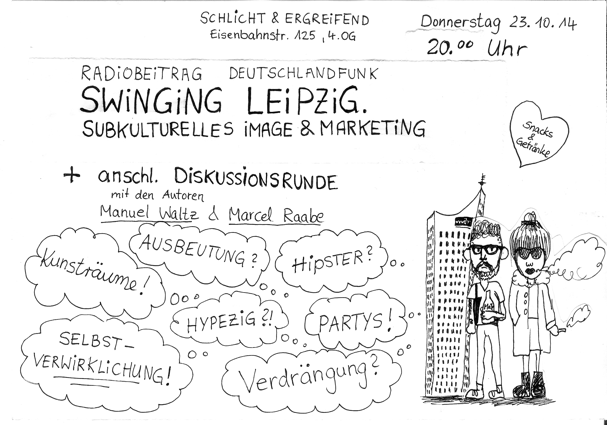 SCHLICHT & ERGREIFEND
Eisenbahnstr. 125, 4.OG
Donnerstag 23.10.14
20.00 Uhr
RADIOBEITRAG DEUTSCHLANDFUNK
SWiNGiNG LEiPZiG.
SUBKULTURELLES iMAGE & MARKETiNG
Snacks
&
Getränke
+ anschl. DiSKUSSiONSRUNDE
mit den Autoren
Manuel Waltz & Marcel Raabe
KUNSTRÄUME!
AUSBEUTUNG?
HiPSTER?
HYPEZiG?!
PARTYS!
SELBST-
VERWiRKLiCHUNG!
Verdrängung?